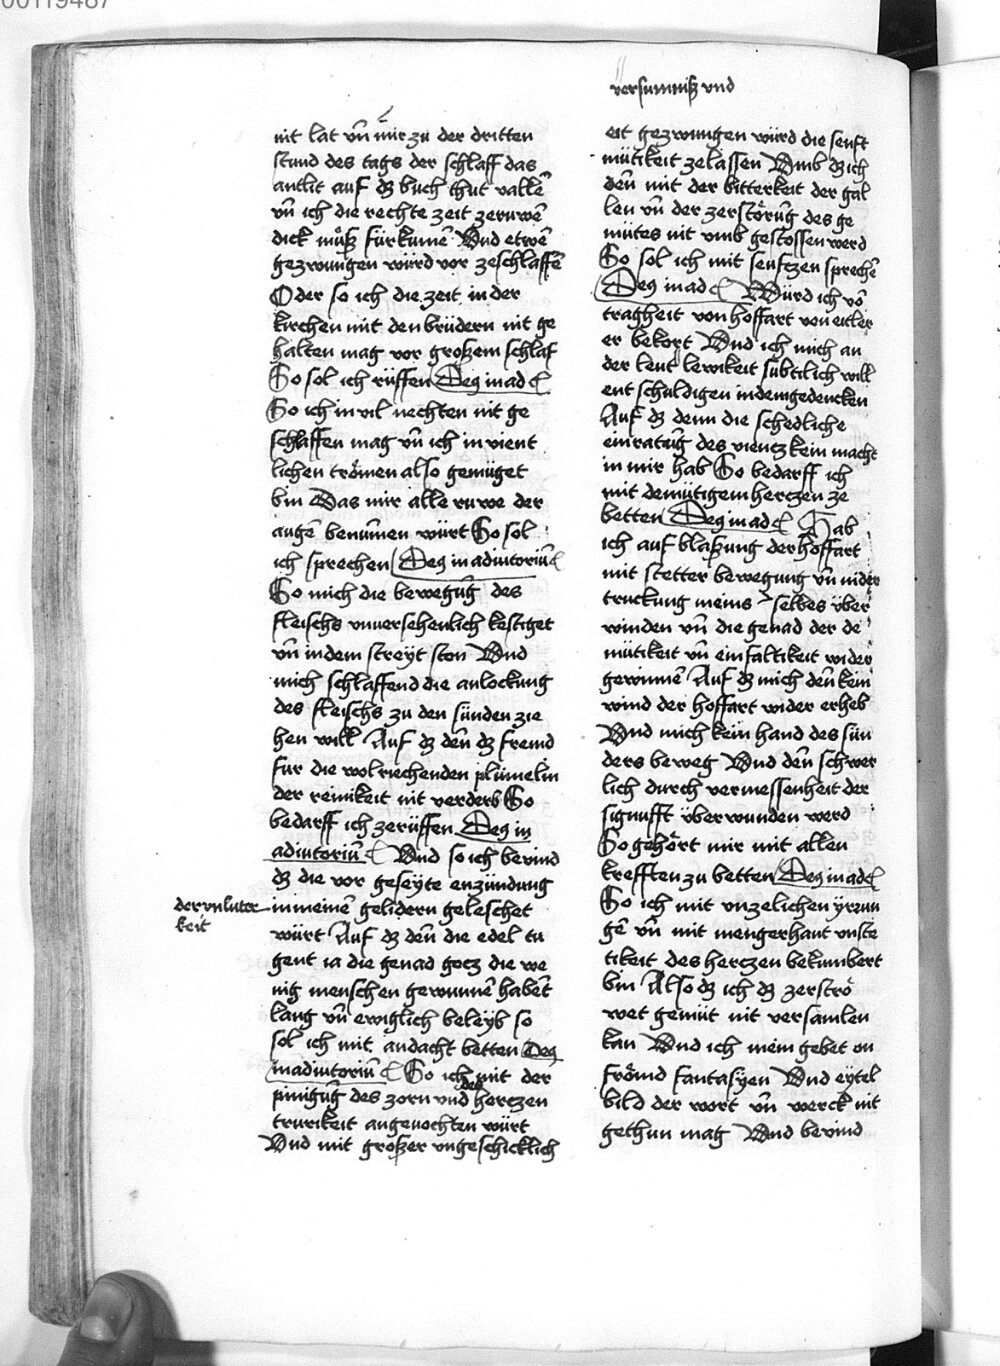 00119487
nit lat vn̄ mir zu der dritten
stund des tags der schlaff das
antlit auf dz buch thut vallē
vn̄ ich die rechte zeit zeruwē
dick můß fürkumē Vnd etwē
gezwungen würd vor zeschlaffē
Oder so ich die zeit in der
kirchen mit den brüdern nit ge
halten mag vor großem schlaf
So sol ich rüffen Deꝯ in ad
So ich in vil nechten nit ge
schlaffen mag vn̄ ich in vient
lichen trömen also gemüget
bin Das mir alle ruwe der
augē benūmen würt So sol
ich sprechen Deꝯ in adiutoriū
So mich die bewegūg des
fleischs vnuersehenlich kestiget
vn̄ in dem streyt ston Vnd
mich schlaffend die anlockung
des fleischs zu den sünden zie
hen will Auf dz dēn dz fremd
fur die wolriechenden plümelin
der reinikeit nit verderb So
bedarff ich zerüffen Deꝯ in
adiutoriū Vnd so ich bevind
dz die vor geseyte enzündung
der vnluter
keit
in meinē gelidern geleschet
würt Auf dz dēn die edel tu
gent ia die genad gocz die we
nig menschen gewunnē habēt
lang vn̄ ewiglich beleyb so
sol ich mit andacht betten Deꝯ
in adiutoriū So ich mit der
pinigūg des zorn vnd des herczen
trurikeit angevochten würt
Vnd mit großer vngeschicklich
versumniß vnd
eit gezwungen würd die senft
mütikeit zelassen Vmb dz ich
dēn mit der bitterkeit der gal
len vn̄ der zerstörūg des ge
mütes nit vmb gestossen werd
So sol ich mit senftzen sprechē
Deꝯ in ad Würd ich vō
tragheit von hoffart von eitler
er bekort Vnd ich mich an
der leut lewikeit subtilich will
entschuldigen in dem gedencken
Auf dz denn die schedliche
einratūg des vientz kein macht
in mir hab So bedarff ich
mit demütigem herczen ze
betten Deꝯ in ad Hab
ich auf blaßung der hoffart
mit stetter bewegung vn̄ nider
truckung meins selbes über
winden vn̄ die genad der de
mütikeit vn̄ einfaltikeit wider
gewinnē Auf dz mich dēn kein
wind der hoffart wider erheb
Vnd mich kein hand des sün
ders beweg Vnd dēn schwer
lich durch vermessenheit der
signufft überwunden werd
So gehört mir mit allen
krefften zu betten Deꝯ in ad
So ich mit vnzelichen yrrun
gē vn̄ mit mengerhant vnste
tikeit des herczen bekumbert
bin Also dz ich dz zerströ
wet gemüt nit versamlen
kan Vnd ich mein gebet on
frömd fantasyen Vnd eytel
bild der wort vn̄ werck nit
gethun mag Vnd bevind